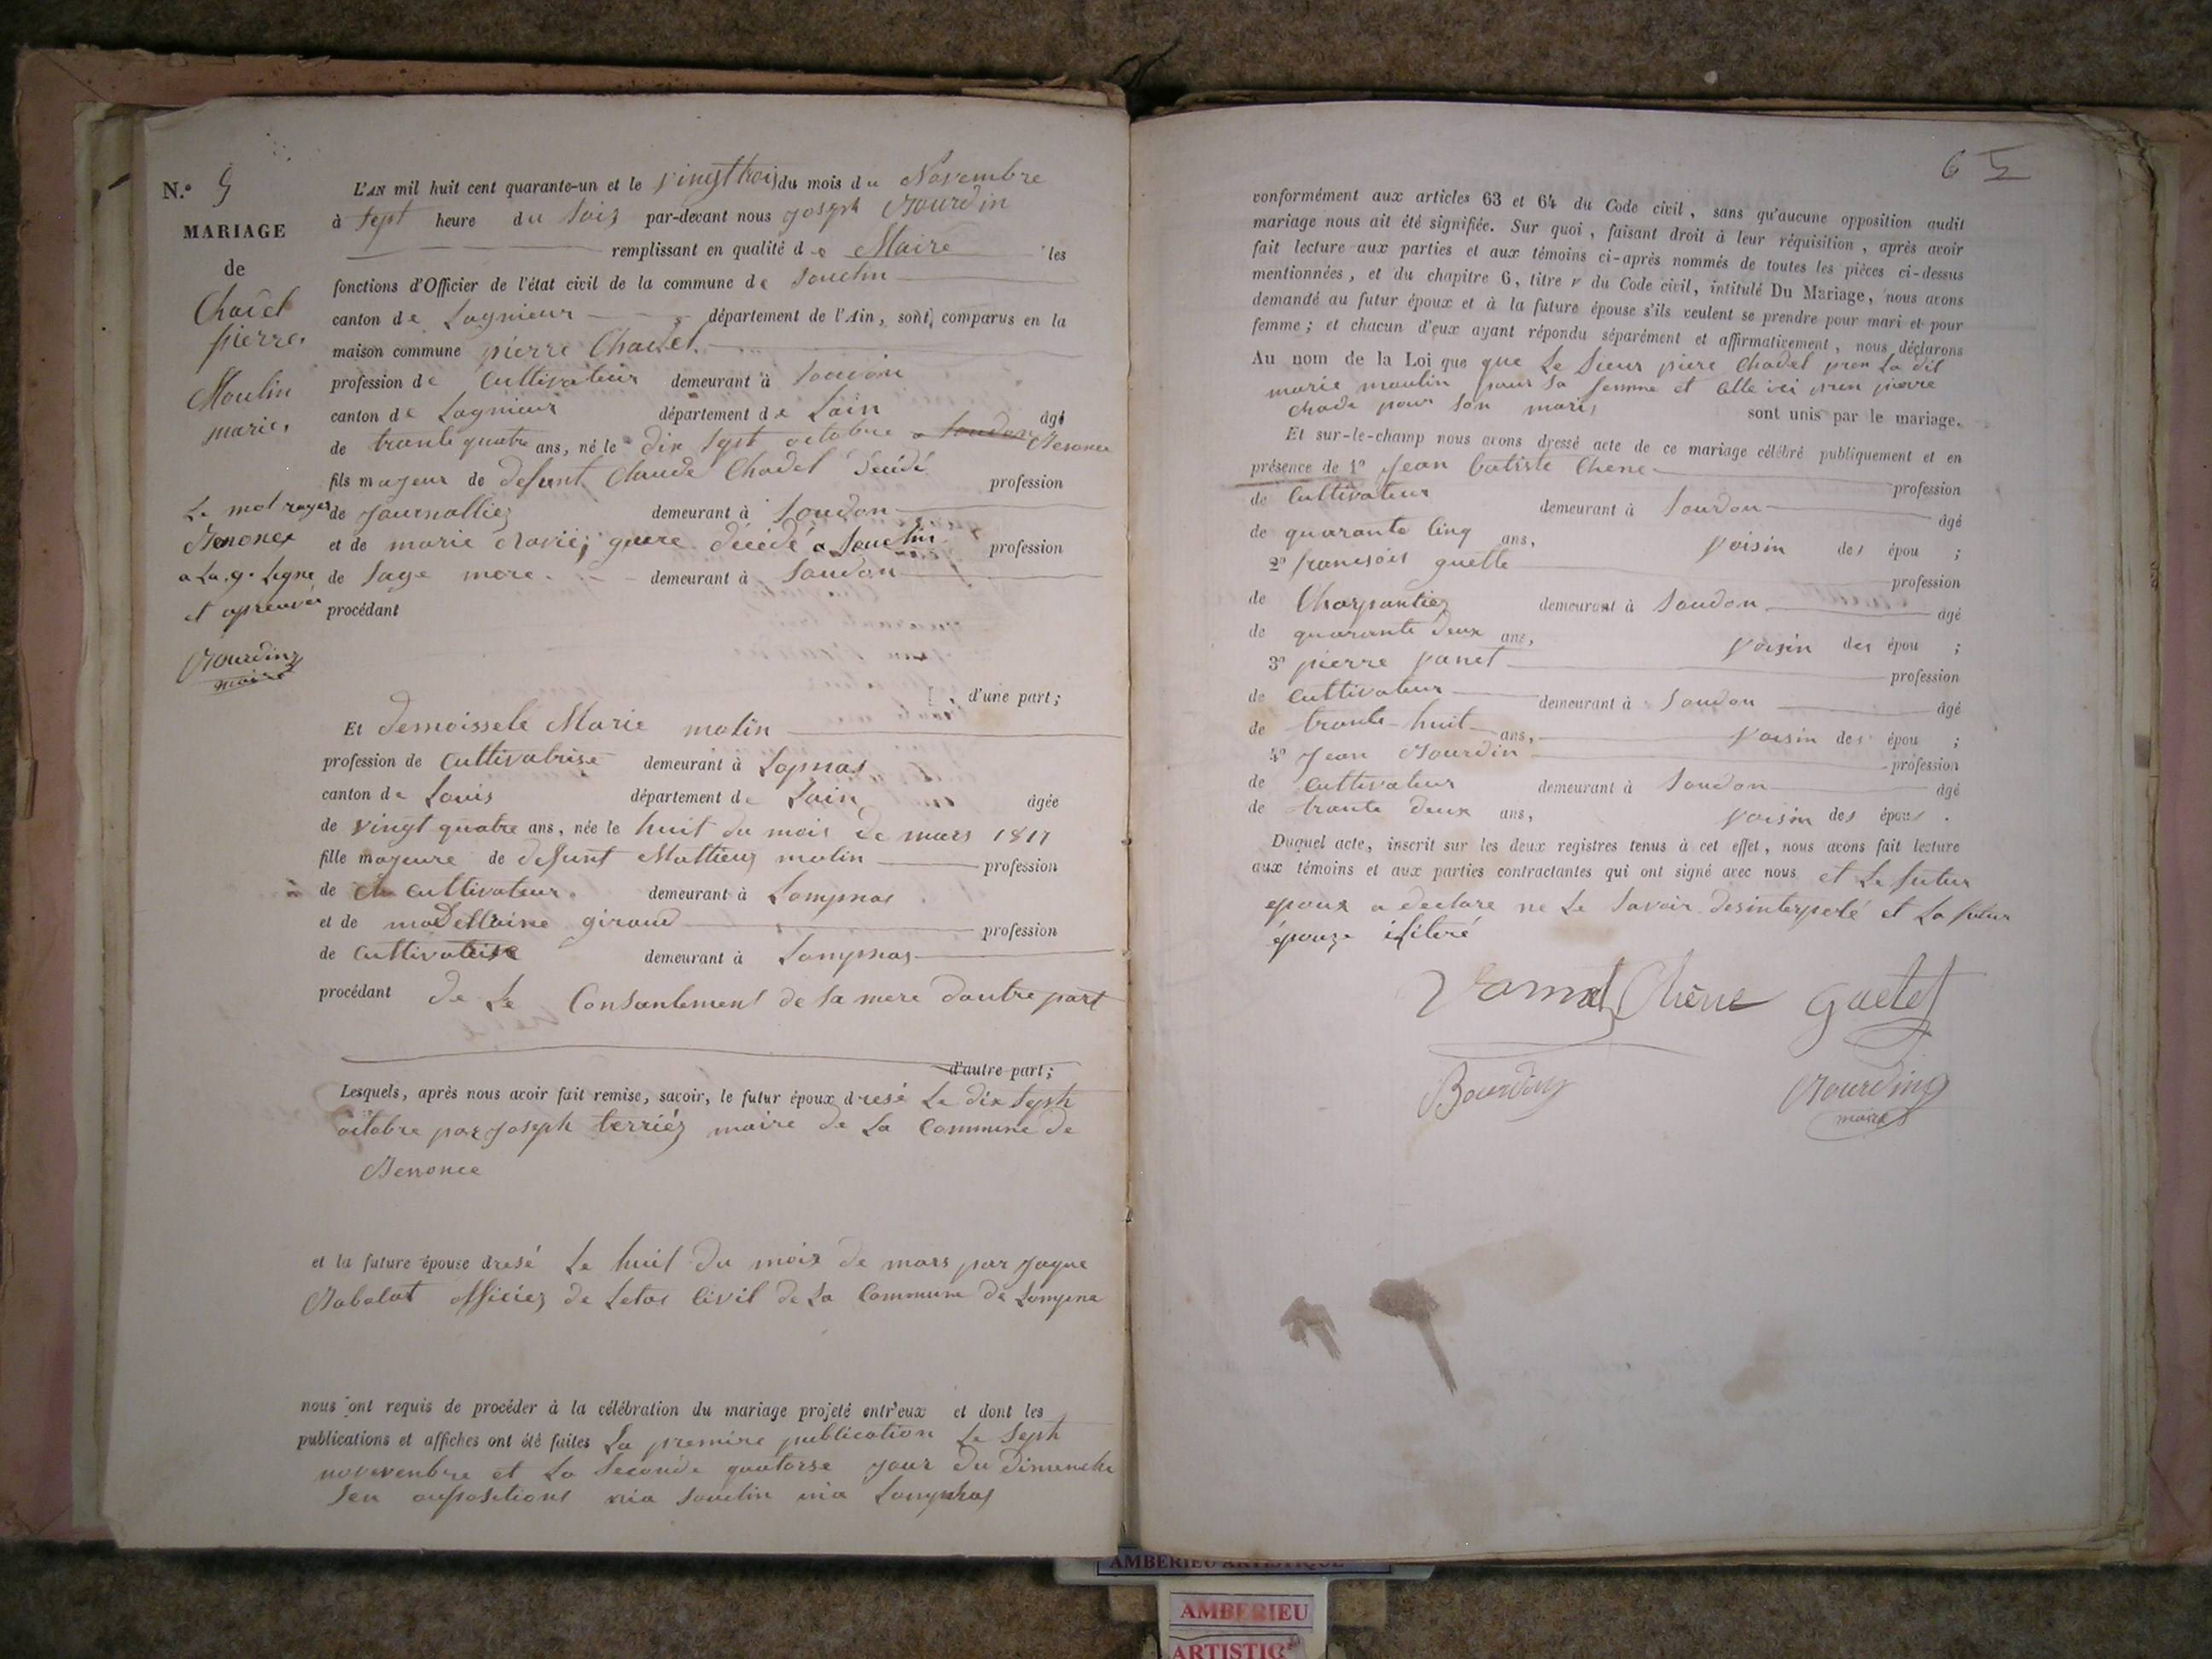 N.° 9
MARIAGE
de
Chadel
pierre.
Moulin
marie,
Le mot rayer
Benonce
a La 9e Legne
et aprouvée
Bourding
maire
L'AN mil huit cent quarante-un et le vingt trois du mois du Novembre
à Sept heure du Soir par-devant nous Joseph Bourdin
remplissant en qualité de Maire les
fonctions d'Officier de l'état civil de la commune de Souclin
canton de Lagnieux département de l'Ain, sont comparus en la
maison commune pierre Chadel
profession de Cultivateur demeurant à Soudon
canton de Lagnieux département de Lain âgé
de trante quatre ans, né le dix Sept octobre a Soudon Benonce
fils majeur de defunt Claude Chadel décidé profession
de Journallier demeurant à Soudon
et de marie décédé a Souclin profession
de Sage mere demeurant à Soudon
procédant
d'une part;
Et demoissele Marie molin
profession de Cultivatrise demeurant à Lopnas
canton de Louis département de Lain âgée
de vingt quatre ans, née le huit du mois de mars 1817
fille majeure de defunt Mathieu molin profession
de Cultivateur. demeurant à Lompnas
et de madellaine giraud profession
de Cultivatrise demeurant à Lompnas
procédant de Le Consantement de sa mere dautre part
d'autre part;
Lesquels, après nous avoir fait remise, savoir, le futur époux dresé Le dix Septe
octobre par Joseph terriér maire de La Commune de
Benonce
et la future épouse dresé Le huit du mois de mars par Jaque
Babolat officier de Letas Civil de La Commune de Lompna
nous ont requis de procéder à la célébration du mariage projeté entr'eux et dont les
publications et affiches ont été faites La premiere publication Le Septe
novevenbre et La Seconde quatorse jour du dimenche
Sen oupositions nia Souclin nia Lompnas
65
conformément aux articles 63 et 64 du Code civil, sans qu'aucune opposition audit
mariage nous ait été signifiée. Sur quoi, faisant droit à leur réquisition, après avoir
fait lecture aux parties et aux témoins ci-après nommés de toutes les pièces ci-dessus
mentionnées, et du chapitre 6, titre v du Code civil, intitulé Du Mariage, nous avons
demandé au futur époux et à la future épouse s'ils veulent se prendre pour mari et pour
femme; et chacun d'eux ayant répondu séparément et affirmativement, nous déclarons
Au nom de la Loi que que Le Sieur piere Chadel pren La dit
marie moulin pour Sa femme et elle ici pren pierre
chade pour Son mari, sont unis par le mariage.
Et sur-le-champ nous avons dressé acte de ce mariage célébré publiquement et en
présence de 1° Jean batiste Chene profession
de Cultivateur demeurant à Soudon âgé
de quarante Cinq ans, voisin des épou ;
2° fransois guette profession
de Charpantier demeurant à Soudon âgé
de quarante deux ans, voisin des épou ;
3° pierre profession
de Cultivateur demeurant à Soudon âgé
de trante huit ans, voisin des épou ;
4° Jean Bourdin profession
de Cultivateur demeurant à Soudon âgé
de trante deux ans, voisin des épous .
Duquel acte, inscrit sur les deux registres tenus à cet effet, nous avons fait lecture
aux témoins et aux parties contractantes qui ont signé avec nous et Le futur
epoux a declare ne Le Savoir desinterpelé et La futur
épouze iliteré
Chêne Guetet
Bourdin Bourding
maire
AMBERIEU ARTISTIQUE
AMBERIEU
ARTISTIQ